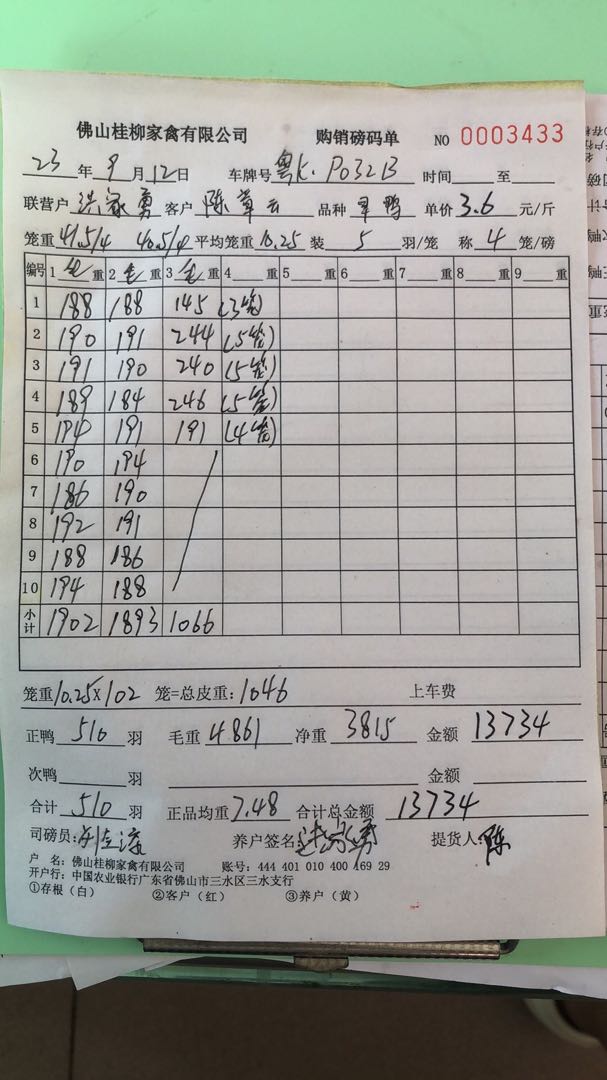 佛山桂柳家禽有限公司 购销磅码单 NO 0003433
23 年 9 月 12 日 车牌号 粤K·P032B 时间 至
联营户 洪家勇 客户 陈草云 品种 单价 3.6 元/斤
笼重 41.5/4 40.5/4 平均笼重 10.25 装 5 羽/笼 称 4 笼/磅
编号 1 毛 重 2 毛 重 3 毛 重 4 重 5 重 6 重 7 重 8 重 9 重
1 188 188 145 (3笼)
2 190 191 244 (5笼)
3 191 190 240 (5笼)
4 189 184 246 (5笼)
5 194 191 191 (4笼)
6 190 194
7 186 190
8 192 191
9 188 186
10 194 188
小计 1902 1893 1066
笼重 10.25×102 笼=总皮重: 1046 上车费
正鸭 510 羽 毛重 4861 净重 3815 金额 13734
次鸭 羽 金额
合计 510 羽 正品均重 7.48 合计总金额 13734
司磅员: 养户签名 洪家勇 提货人 陈
户 名: 佛山桂柳家禽有限公司 账号: 444 401 010 400 169 29
开户行: 中国农业银行广东省佛山市三水区三水支行
①存根(白) ②客户(红) ③养户(黄)